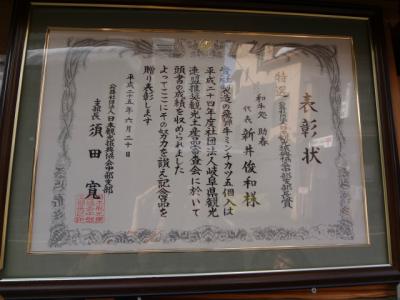 表彰状
特選 公益社団法人日本観光振興協会中部支部長賞
和牛処 助春
代表 新井俊和様
貴社製造の飛騨牛ミンチカツ五個入は
平成二十四年度社団法人岐阜県観光
連盟推奨観光土産品審査会に於いて
頭書の成績を収められました
よってここにその努力を讃え記念品を
贈り表彰します
平成二十五年六月二十日
公益社団法人日本観光振興協会中部支部
支部長 須田 寛